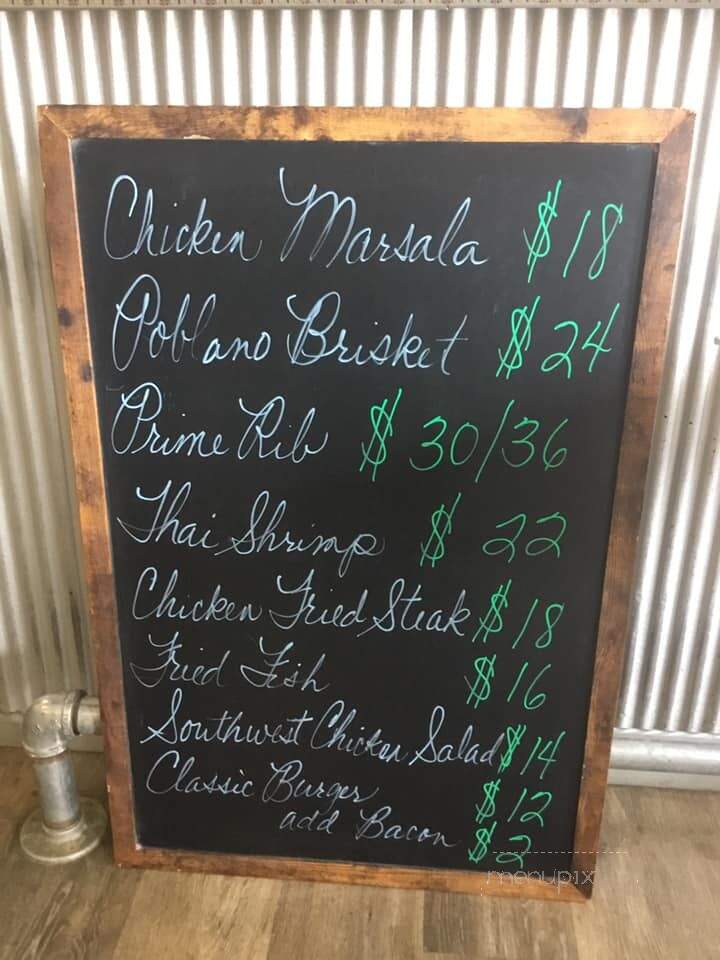 Chicken Marsala $18
Poblano Brisket $24
Prime Rib $30/36
Thai Shrimp $22
Chicken Fried Steak $18
Fried Fish $16
Southwest Chicken Salad $14
Classic Burger $12
add Bacon $2
menupix